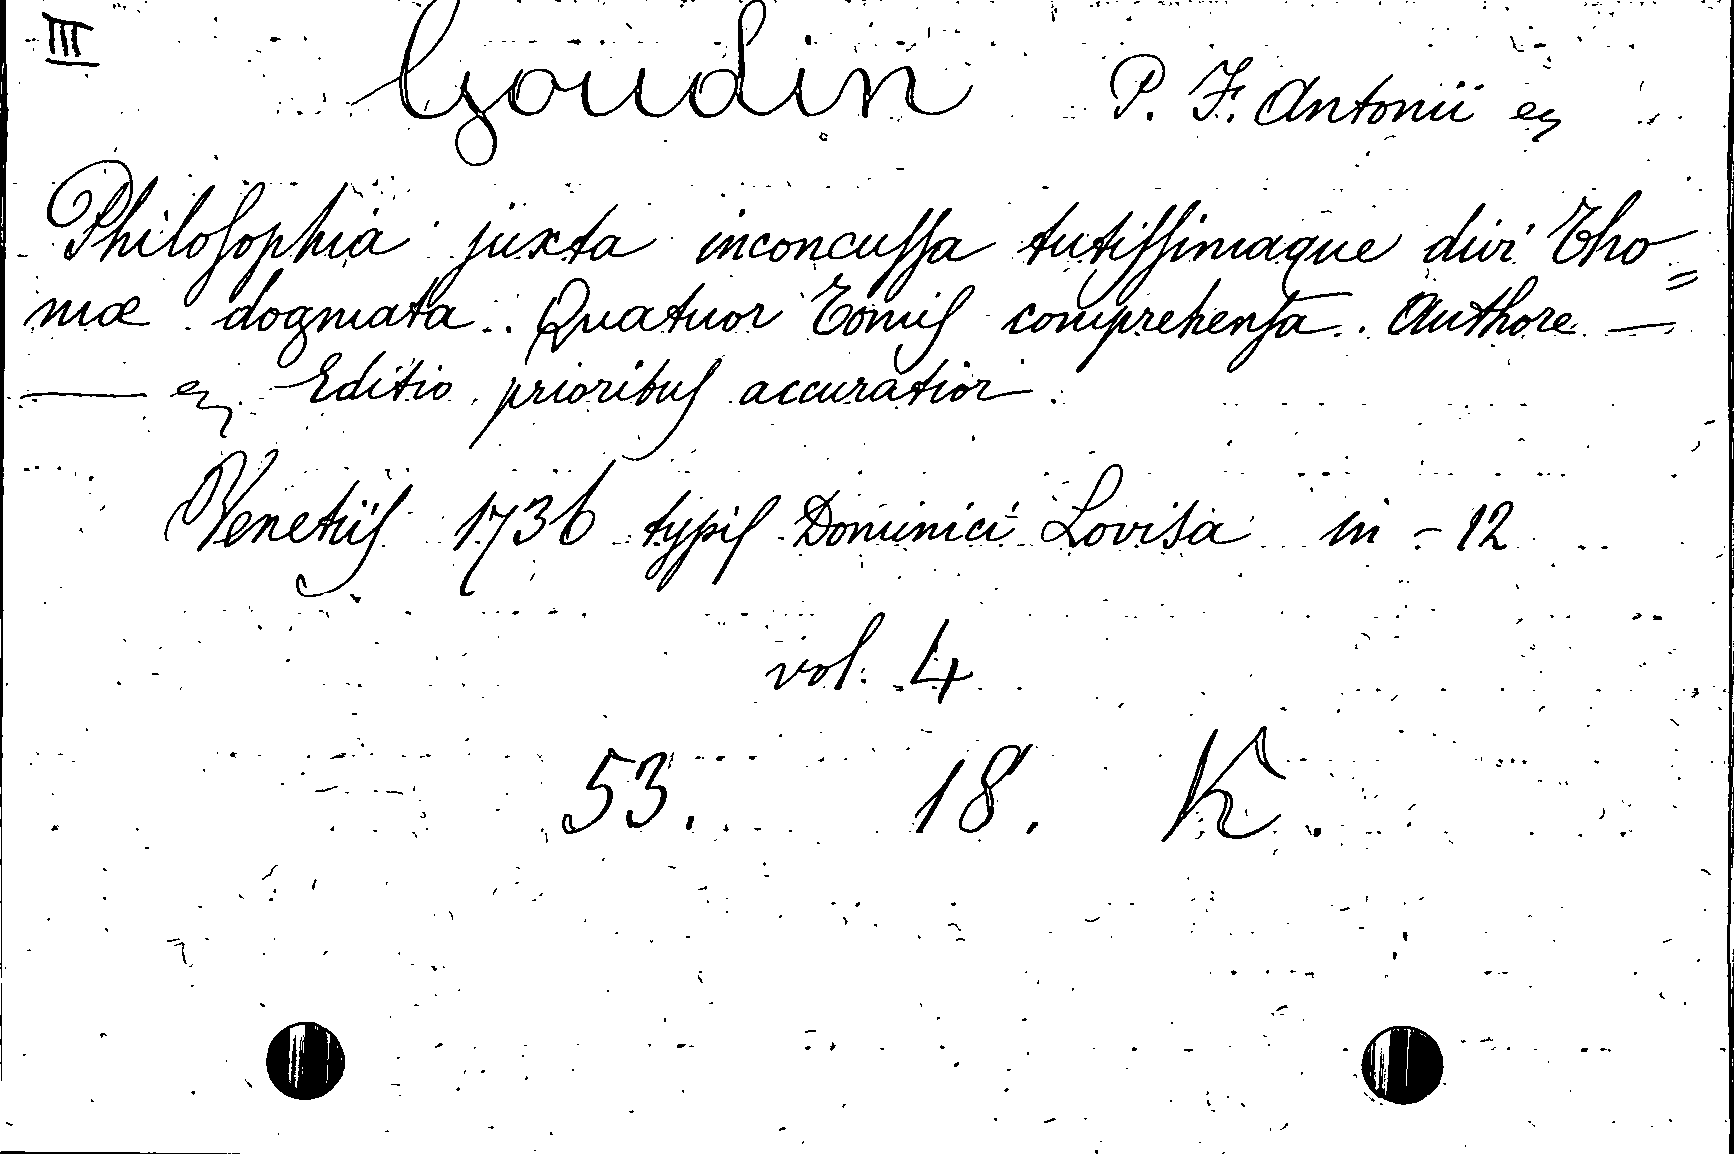 III
Goudin P. F. Antonii
Philoſophia juxta inconcuſſa tutiſſimaque divi Tho=
mæ dogmata. Quatuor Tomiſ comprehenſa. Authore —
— Editio prioribuſ accuratior.
Venetiiſ 1736 typiſ Dominici Loviſa in - 12
vol. 4
53. 18. K.